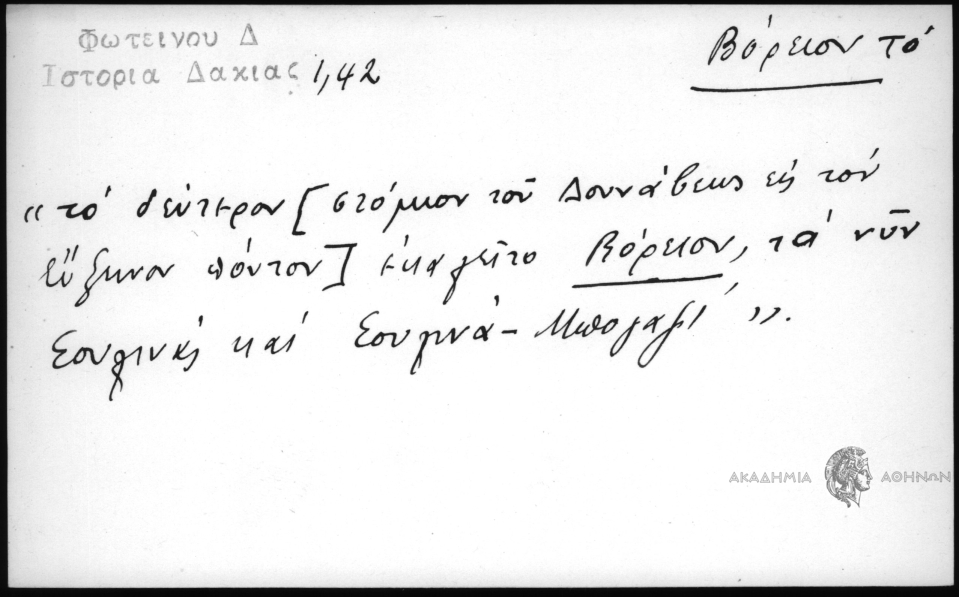 Φωτεινου Δ
Ιστορια Δακιας 1,42
Βόρειον τό
« τό δεύτερον [ στόμιον τοῦ Δουνάβεως εἰς τόν
Εὔξεινον πόντον ] ἐκαλεῖτο Βόρειον, τά νῦν
Σουλινᾶς καί Σουλινᾶ - Μπογαζί ».
ΑΚΑΔΗΜΙΑ ΑΘΗΝΩΝ